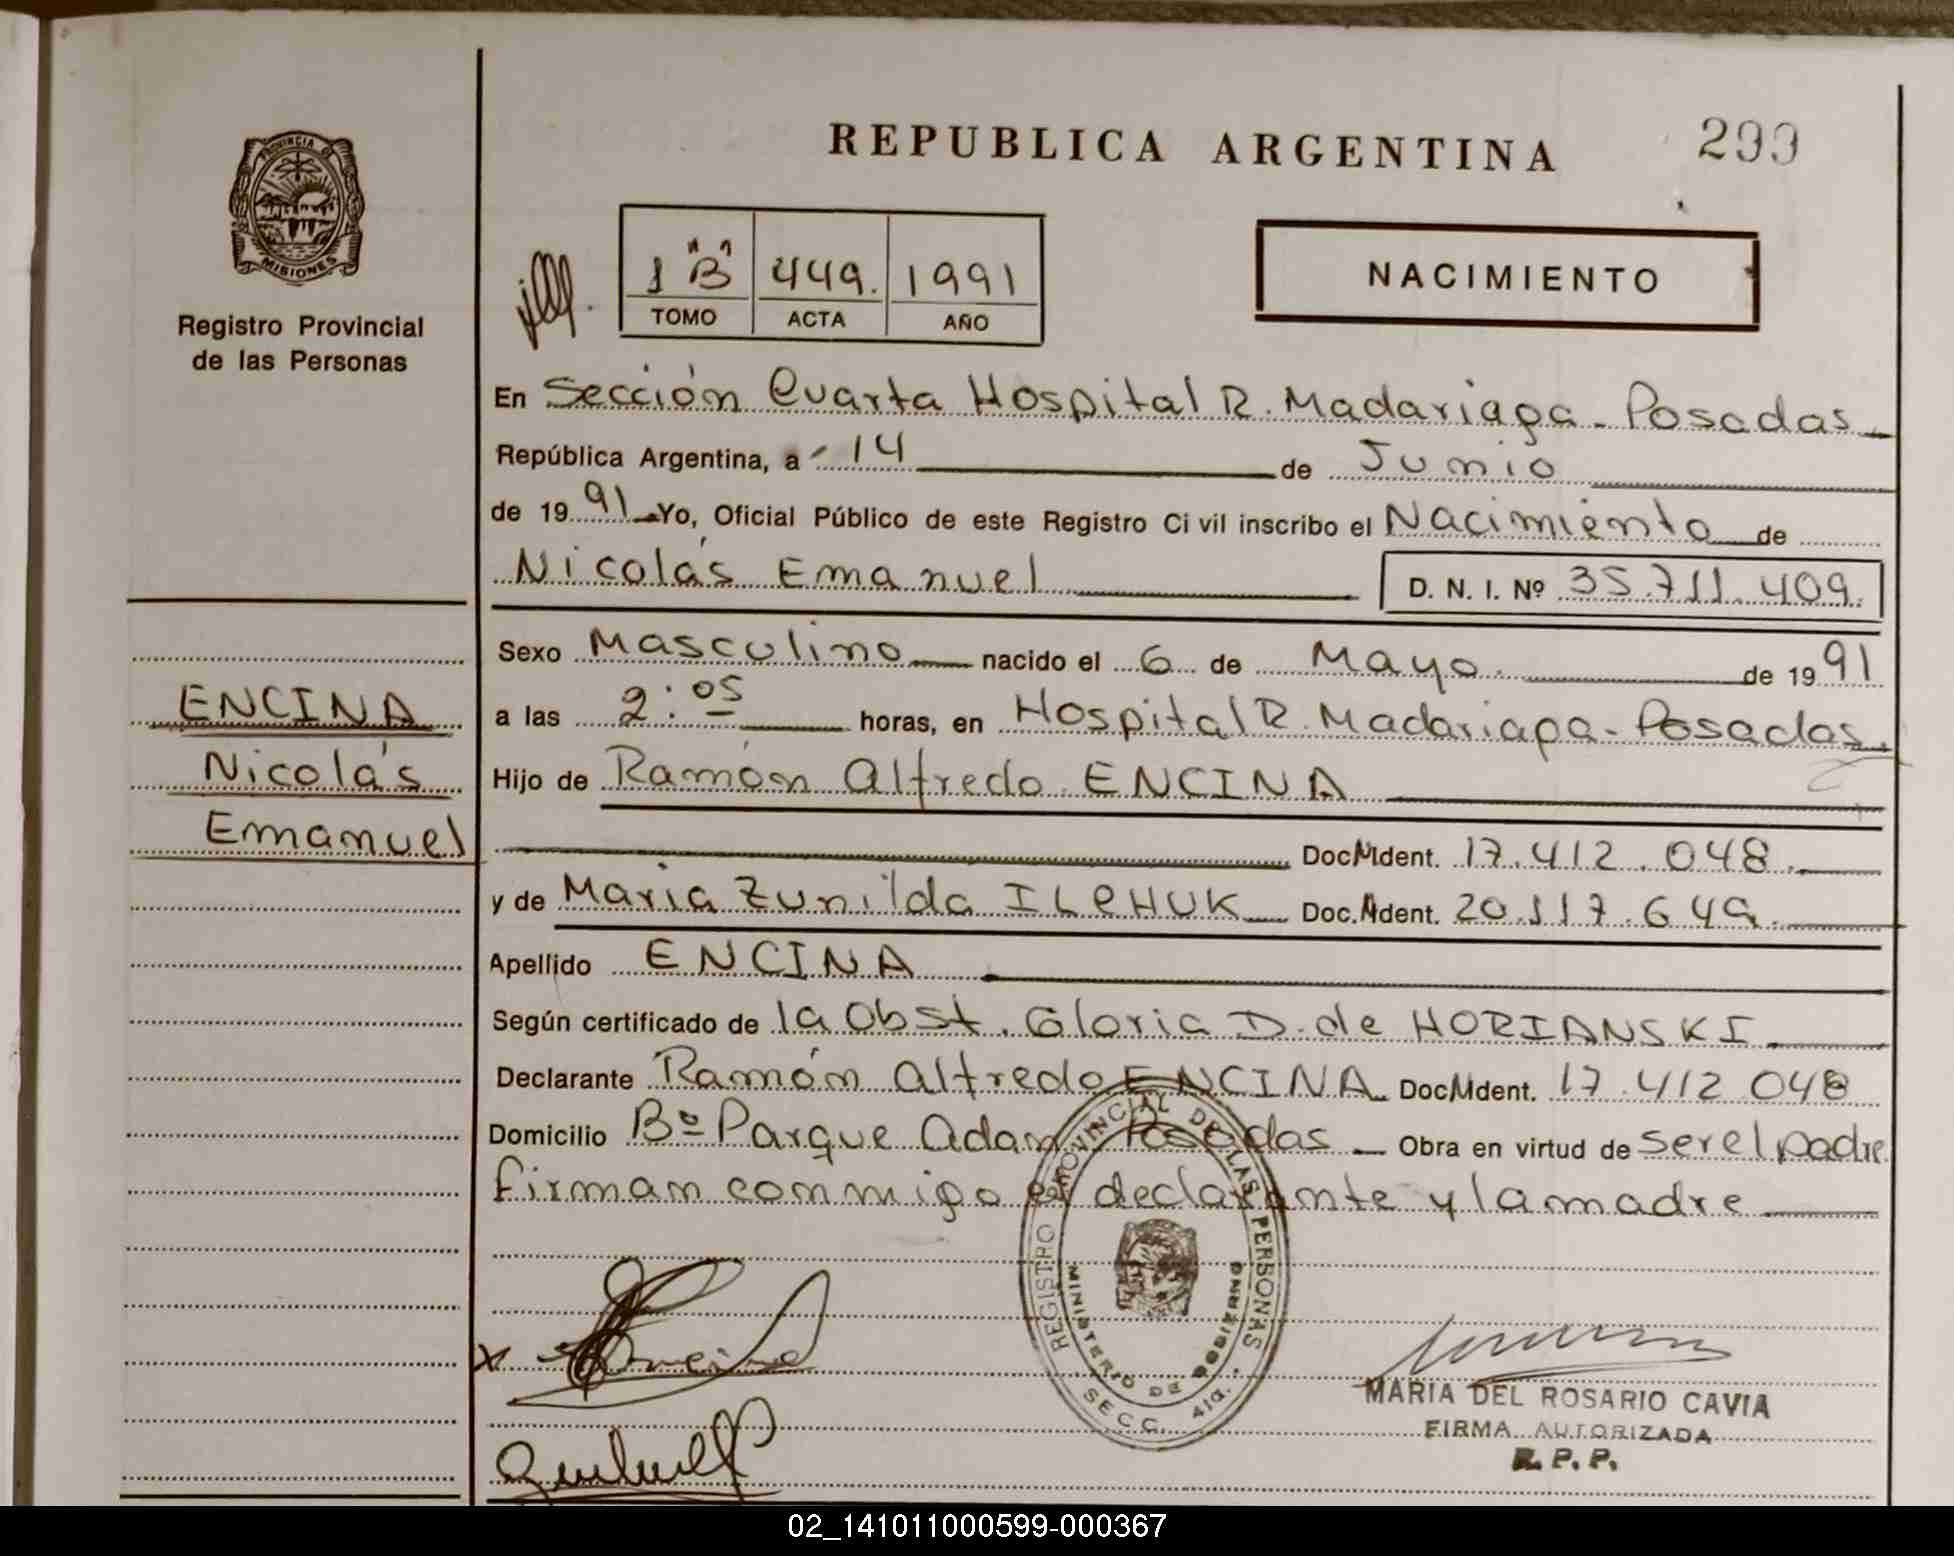 REPUBLICA ARGENTINA
299
PROVINCIA DE
MISIONES
Registro Provincial
de las Personas
1 "B" 449. 1991
TOMO ACTA AÑO
NACIMIENTO
En Sección Cuarta Hospital R. Madariaga - Posadas
República Argentina, a 14 de Junio
de 1991 Yo, Oficial Público de este Registro Civil inscribo el Nacimiento de
Nicolás Emanuel D. N. I. Nº 35.711.409.
Sexo Masculino nacido el 6 de Mayo de 1991
ENCINA
Nicolás
Emanuel
a las 2:05 horas, en Hospital R. Madariaga - Posadas
Hijo de Ramón Alfredo ENCINA
Doc. Ident. 17.412.048.
y de Maria Zunilda ILCHUK Doc. Ident. 20.117.649.
Apellido ENCINA
Según certificado de la Obst. Gloria D. de HORIANSKI
Declarante Ramón Alfredo ENCINA Doc. Ident. 17.412.048
Domicilio Bº Parque Adam Posadas Obra en virtud de ser el padre
firman conmigo el declarante y la madre
REGISTRO PROVINCIAL DE LAS PERSONAS
MINISTERIO DE GOBIERNO
SECC. 4ta.
MARIA DEL ROSARIO CAVIA
FIRMA AUTORIZADA
R. P. P.
02_141011000599-000367